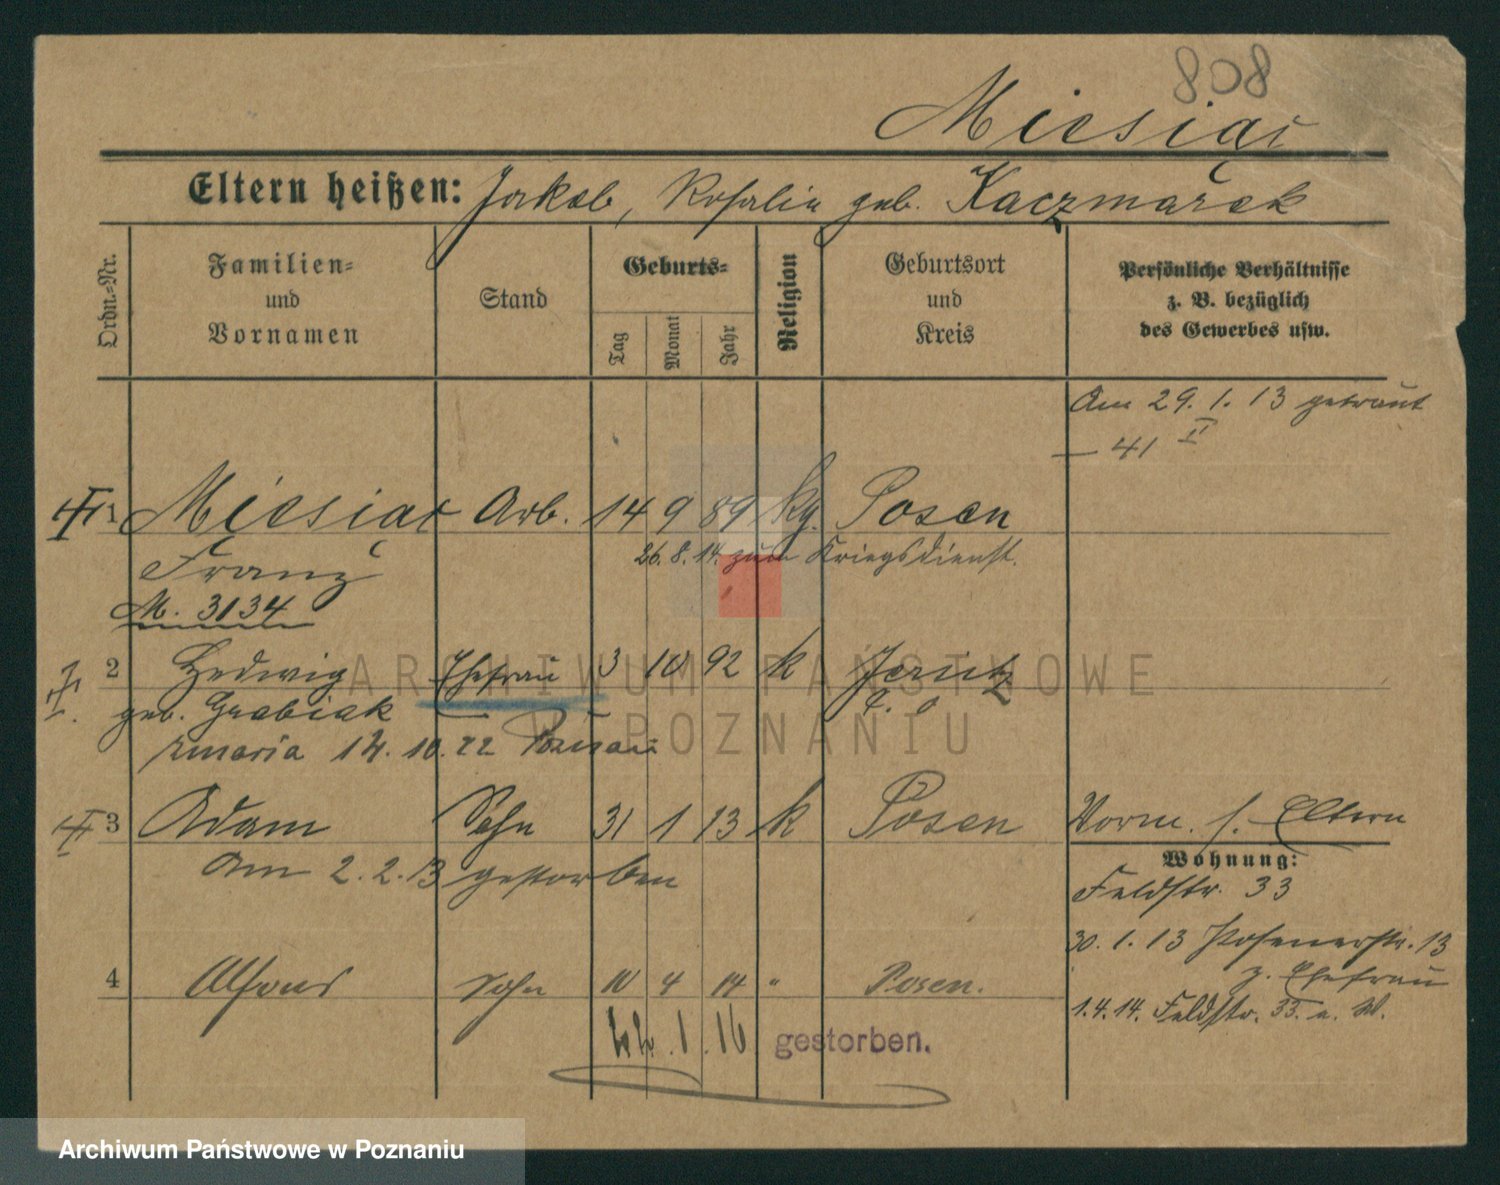 808
Miesiąc
Eltern heißen: Jakob, Rosalie geb. Kaczmarek
Ordn.-Nr.
Familien- und Vornamen
Stand
Geburts-
Tag
Monat
Jahr
Religion
Geburtsort und Kreis
Persönliche Verhältnisse
z. B. bezüglich
des Gewerbes usw.
Am 29. 1. 13 getraut
41
1 Miesiąc Arb. 14 9 89 kg. Posen
Franz 26. 8. 14. zum Kriegsdienst.
M. 3134
2 Hedwig Ehefrau 3 10 92 k Jersitz
geb. Grabiak
zmarła 14. 10. 22 Poznań
3 Adam Sohn 31 1 13 k Posen Worm. s. Eltern
Am 2. 2. 13 gestorben
Wohnung:
Feldstr. 33
30. 1. 13 Posenerstr. 13
z. Ehefrau
4 Alfons Sohn 10 4 14 " Posen.
1. 4. 14. Feldstr. 33. b. W.
22. 1. 16 gestorben.
ARCHIWUM PAŃSTWOWE
W POZNANIU
Archiwum Państwowe w Poznaniu